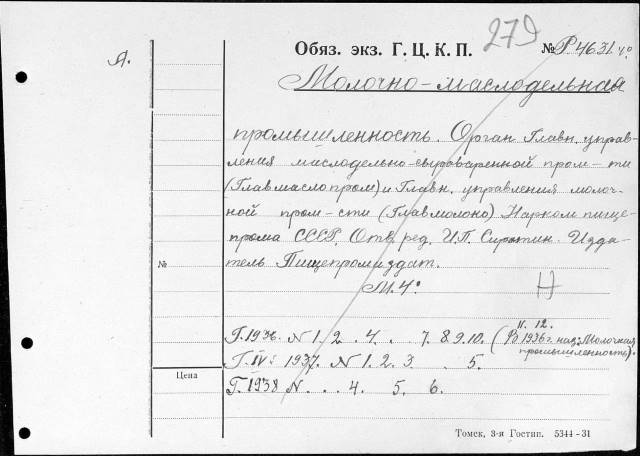 279
А.
Обяз. экз. Г. Ц. К. П.
№ Р.4631.4°
Молочно-маслодельная
промышленность. Орган Главн. управ-
ления маслодельно-сыроваренной пром-ти
(Главмаслопром) и Главн. управления молоч-
ной пром-сти (Главмолоко) Нарком пище-
прома СССР. Отв. ред. И.П. Изда-
№
тель Пищепромиздат.
М. 4°
Н
11. 12.
Г. 1936. N 1. 2. 4. . . 7. 8. 9. 10. (В 1936 г. наз: Молочная
промышленность).
Г. IV: 1937. N 1. 2. 3. . 5.
Цена
Г. 1938 N. . . 4. 5. 6.
Томск, 3-я Гостип. 5344-31